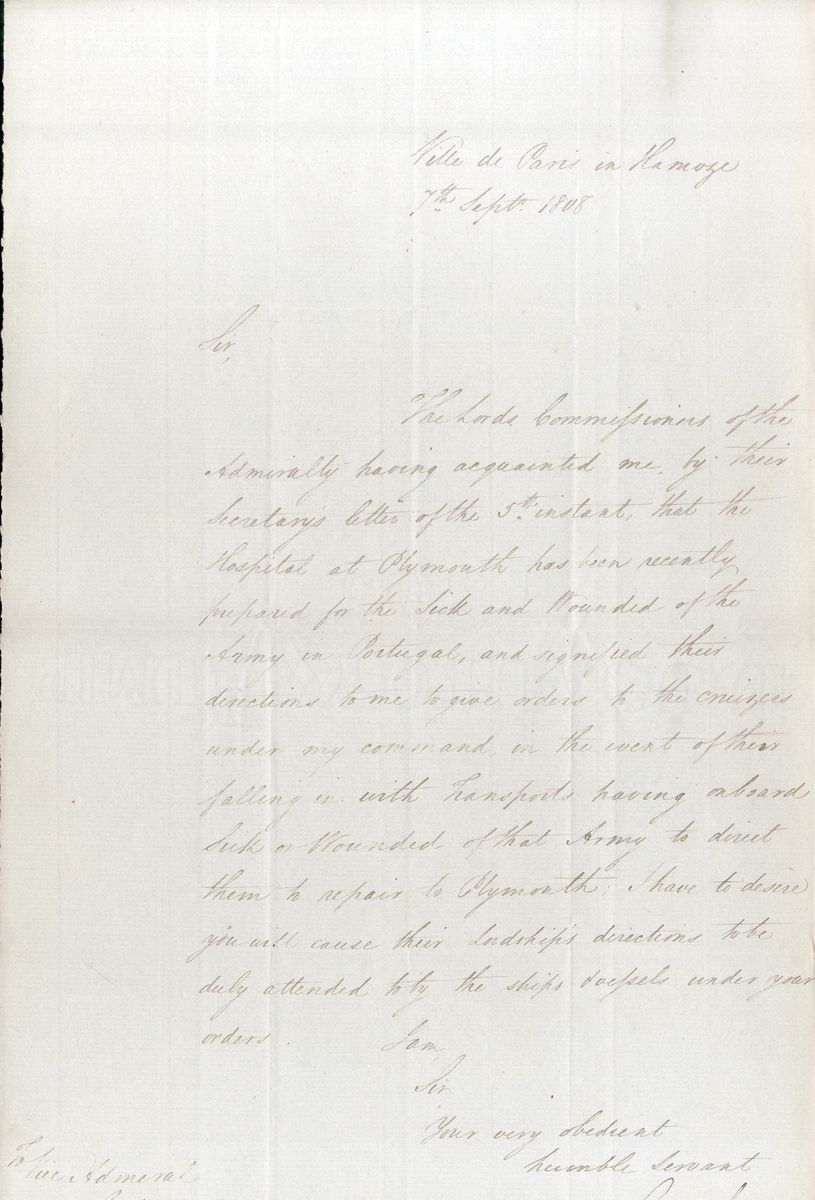 Ville de Paris in Hamoze
7th Septr. 1808
Sir,
The Lords Commissioners of the
Admiralty having acquainted me, by their
Secretary's letter of the 5th instant, that the
Hospital at Plymouth has been recently
prepared for the Sick and Wounded of the
Army in Portugal, and signified their
directions to me to give orders to the cruizers
under my command in the event of their
falling in with Transports having onboard
Sick or Wounded of that Army to direct
them to repair to Plymouth; I have to desire
you will cause their Lordship's directions to be
duly attended to by the ships & vessels under your
orders.
I am
Sir
Your very obedient
humble Servant
To
Vice Admiral